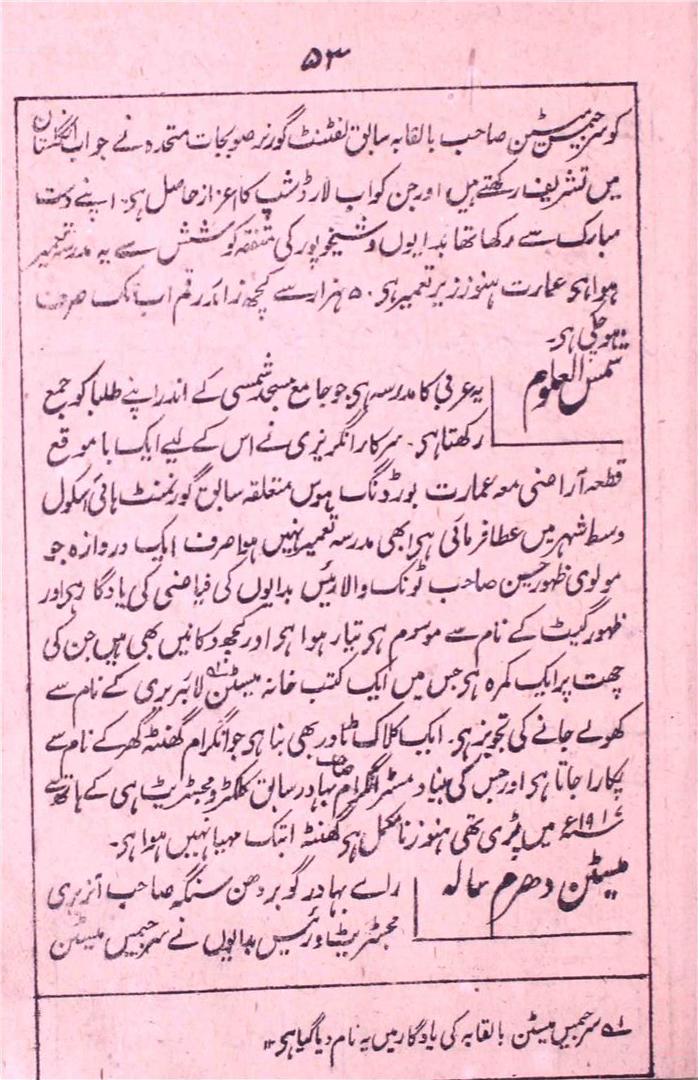 ۵۳
کو سر جیمس میسٹن صاحب بالقابہ سابق لفٹننٹ گورنر صوبجات متحدہ نے جو اب انگلستان
میں تشریف رکھتے ہیں اور جن کو اب لارڈ شپ کا اعزاز حاصل ہی۔ اپنے دست
مبارک سے رکھا تھا بدایوں و شیخوپور کی متفقہ کوشش سے یہ مدرسہ تعمیر
ہوا ہی عمارت ہنوز زیر تعمیر ہی۔ ۵۰ ہزار سے کچھ زائد رقم اب تک صرف
ہو چکی ہی۔
شمس العلوم
یہ عربی کا مدرسہ ہی جو جامع مسجد شمسی کے اندر اپنے طلبا کو جمع
رکھتا ہی۔ سرکار انگریزی نے اس کے لیے ایک با موقع
قطعہ آراضی معہ عمارت بورڈنگ ہوس متعلقہ سابق گورنمنٹ ہائی اسکول
وسط شہر میں عطا فرمائی ہی ابھی مدرسہ تعمیر نہیں ہوا صرف ایک دروازہ جو
مولوی ظہور حسین صاحب ٹونک والا رئیس بدایوں کی فیاضی کی یادگار ہی اور
ظہور گیٹ کے نام سے موسوم ہی تیار ہوا ہی اور کچھ دکانیں بھی ہیں جن کی
چھت پر ایک کمرہ ہی جس میں ایک کتب خانہ میسٹن لہ لائبریری کے نام سے
کھولے جانے کی تجویز ہی۔ ایک کلاک ٹاور بھی بنا ہی جو انگرام گھنٹہ گھر کے نام سے
پکارا جاتا ہی اور جس کی بنیاد مسٹر انگرام صاحب بہادر سابق کلکٹر و مجسٹریٹ ہی کے ہاتھ سے
۱۹۱۶ء میں پڑی تھی ہنوز نامکمل ہی گھنٹہ ابتک مہیا نہیں ہوا ہی۔
میسٹن دھرم سالہ
راے بہادر گوبردھن سنگھ صاحب آنریری
مجسٹریٹ و رئیس بدایوں نے سر جیمس میسٹن
لہ سر جیمس میسٹن بالقابہ کی یادگار میں یہ نام دیا گیا ہی ۱۲